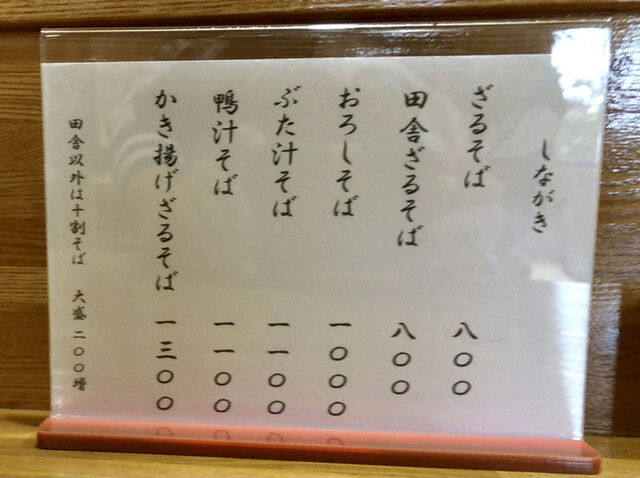 しながき
ざるそば 八〇〇
田舎ざるそば 八〇〇
おろしそば 一〇〇〇
ぶた汁そば 一一〇〇
鴨汁そば 一一〇〇
かき揚げざるそば 一三〇〇
田舎以外は十割そば 大盛二〇〇増